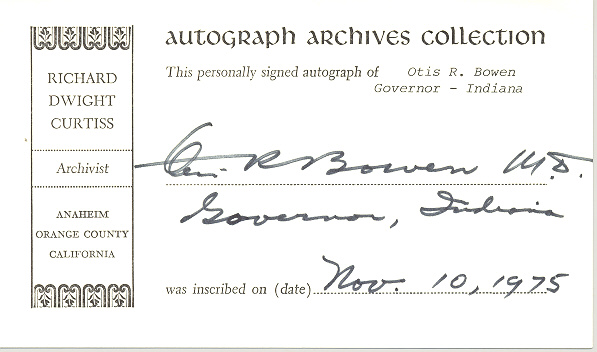 RICHARD
DWIGHT
CURTISS
Archivist
ANAHEIM
ORANGE COUNTY
CALIFORNIA
AUTOGRAPH ARCHIVES COLLECTION
This personally signed autograph of Otis R. Bowen
Governor - Indiana
Otis R Bowen M.D.
Governor, Indiana
was inscribed on (date) Nov. 10, 1975